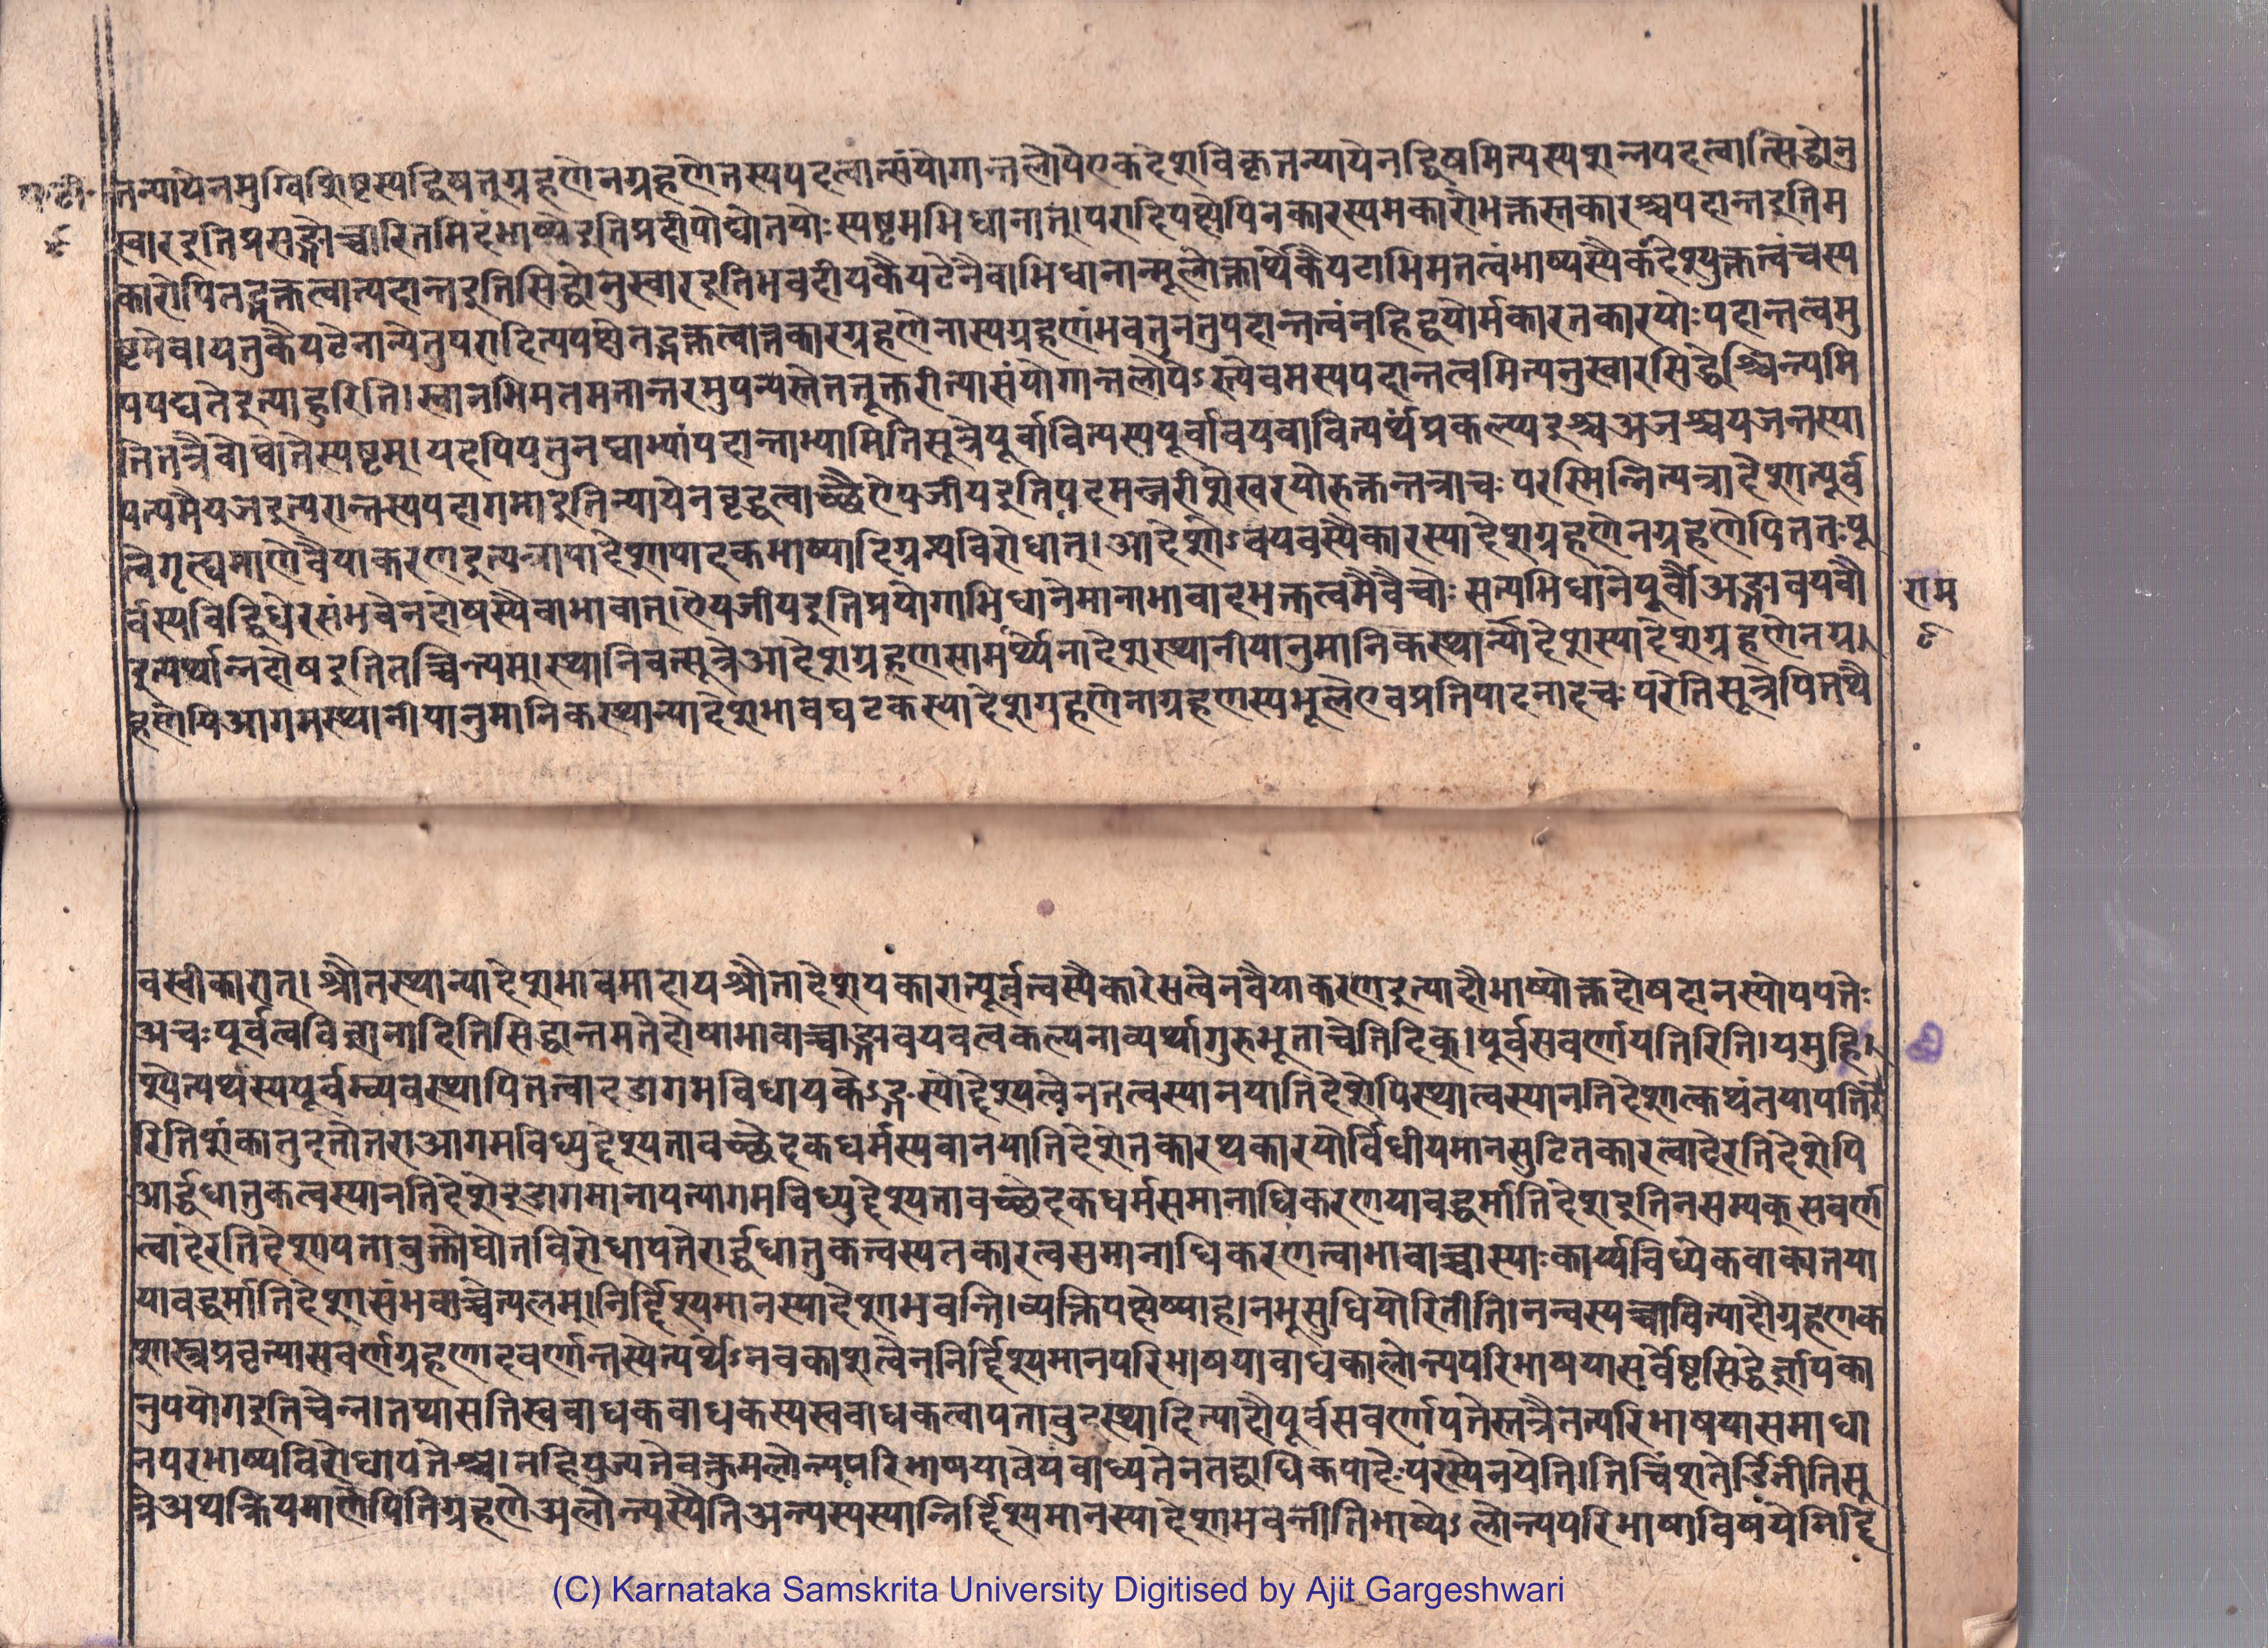 प॰ टी॰
९
तन्यायेनमुग्विशिष्टस्यद्विषतुग्रहणेनग्रहणेतस्यपदत्वात्संयोगान्तलोपेएकदेशविकृतन्यायेनद्विषमित्यस्यशन्नपदत्वात्सिद्धोनु
स्वारइतिप्रसङ्गोच्चारितमिदंभाष्येइतिप्रदीपोद्योतयोःस्पष्टमभिधानात्।परादिपक्षेपिनकारस्यमकारोभक्तस्तकारश्चपदान्तइतिम
कारोपितद्भक्तत्वात्पदान्तइतिसिद्धोनुस्वारइतिभवदीयकैयटेनैवाभिधानान्मूलोक्तार्थेकैयटाभिमतत्वंभाष्यस्यैकदेश्युक्तत्वंचस्प
ष्टमेव।यत्तुकैयटेनान्येतुपरादित्यपक्षेतद्भक्तत्वात्तकारग्रहणेनास्यग्रहणंभवतुनतुपदान्तत्वंनहिद्वयोर्मकारतकारयोःपदान्तत्वमु
पपद्यतेइत्याहुरिति।स्वानभिमतमतान्तरमुपन्यस्तेतत्तूक्तरीत्यासंयोगान्तलोपेऽस्त्येवमस्यपदान्तत्वमित्यनुस्वारसिद्धेश्चिन्त्यमि
तितत्रैवोद्योतेस्पष्टम्।यदपियत्तुनय्वाभ्यांपदान्ताभ्यामितिसूत्रेपूर्वावित्यस्यपूर्वावयवावित्यर्थंप्रकल्प्यइश्चअजश्चयजन्तस्या
पत्यमैयजइत्यरान्तस्यपदागमाइतिन्यायेनवृद्धत्वाच्छेऐयजीयइतिपदमञ्जरीशेखरयोरुक्तन्तत्राचःपरस्मिन्नित्यत्रादेशात्पूर्व
त्वेगृह्यमाणेवैयाकरणइत्यत्रायादेशापादकभाष्यादिग्रन्थविरोधात्।आदेशेऽवयवस्यैकारस्यादेशग्रहणेनग्रहणेपिततःपू
र्वस्यविद्धिधेरसंभवेनदोषस्यैवाभावात्।ऐयजीयइतिप्रयोगाभिधानेमानाभावादभक्तत्वमेवैचोःसत्यभिधानेपूर्वौअङ्गावयवौ
इत्यर्थान्नदोषइतितच्चिन्त्यम्।स्थानिवत्सूत्रेआदेशग्रहणसामर्थ्येनादेशस्थानीयानुमानिकस्थान्यादेशस्यादेशग्रहणेनग्र
हणेपिआगमस्थानीयानुमानिकस्थान्यादेशभावघटकस्यादेशग्रहणेनाग्रहणस्यमूलेएवप्रतिपादनादचःपरेतिसूत्रेपितथै
राम
९
वस्वीकारात्।श्रौतस्थान्यादेशभावमादायश्रौतादेशयकारात्पूर्वत्वस्यैकारेसत्वेनवैयाकरणइत्यादौभाष्योक्तदोषदानस्योपपत्तेः
अचःपूर्वत्वविज्ञानादितिसिद्धान्तमतेदोषाभावाच्चाङ्गावयवत्वकल्पनाव्यर्थागुरुभूताचेतिदिक्।पूर्वसवर्णायत्तिरिति।यमुद्दि
श्येत्यर्थस्यपूर्वम्व्यवस्थापितत्वादडागमविधायकेऽङ्गस्योद्देश्यत्वेनतत्वस्यानयातिदेशेपिस्थात्वस्यानतिदेशात्कथंतयापत्तिरे
रितिशंकातुदत्तोत्तराआगमविध्युद्देश्यतावच्छेदकधर्मस्यवानयातिदेशेतकारथकारयोर्विधीयमानसुटितकारत्वादेरतिदेशेपि
आर्द्धधातुकत्वस्यानतिदेशेइडागमानापत्त्यागमविध्युद्देश्यतावच्छेदकधर्मसमानाधिकरणयावद्धर्मातिदेशइतिनसम्यक्सवर्ण
त्वादेरतिदेशापत्तावुक्तोद्योतविरोधापत्तेरार्द्धधातुकत्वस्यतकारत्वसमानाधिकरणत्वाभावाच्चास्याःकार्य्यविध्येकवाक्यतया
यावद्धर्मातिदेशासंभवाच्चेत्यलम्।निर्द्दिश्यमानस्यादेशाभवन्ति।व्यक्तिपक्षेष्याह।नभूसुधियोरितीति।नन्वस्यच्वावित्यादौग्रहणक
शास्त्रप्रवृत्त्यासवर्णग्रहणादवर्णान्तस्येत्यर्थेऽनवकाशत्वेननिर्द्दिश्यमानपरिभाषयाबाधकालोन्त्यपरिभाषयासर्वेष्टसिद्धेर्ज्ञापका
नुपयोगइतिचेन्न।तथासतिस्वबाधकबाधकस्यस्वबाधकत्वापत्तावुदस्थादित्यादौपूर्वसवर्णापत्तेस्तत्रैतत्परिभाषयासमाधा
नपरभाष्यविरोधापत्तेश्च।नहियुज्यतेवक्तुमलोन्त्यपरिभाषयावेयंबाध्यतेनतद्बाधिकपादेःपरस्येत्नयेति।तिचिंशतेर्डितीतिसू
त्रेअथक्रियमाणेपितिग्रहणेअलोन्त्यस्येतिअन्त्यस्यस्यान्निर्द्दिश्यमानस्यादेशाभवन्तीतिभाष्येऽलोन्त्यपरिभाषाविषयेनिर्द्दि
(C) Karnataka Samskrita University Digitised by Ajit Gargeshwari